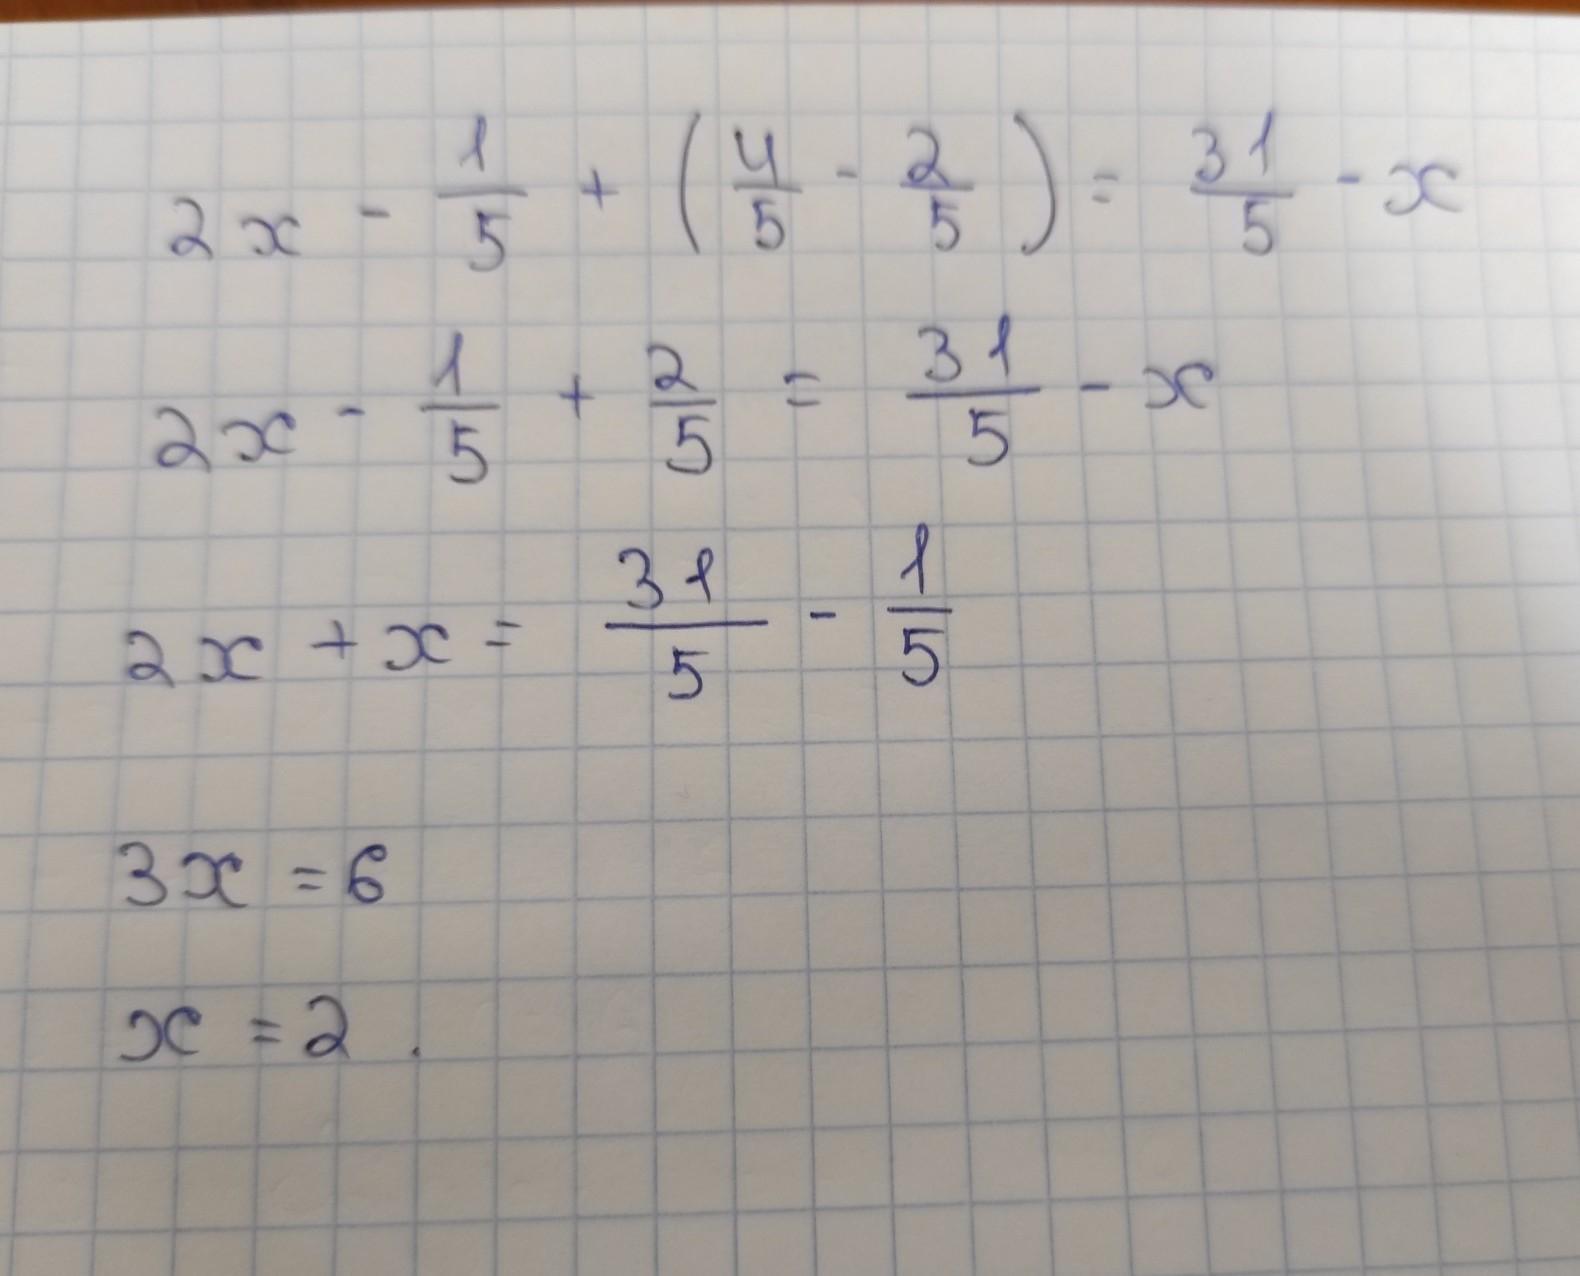 2x - 1/5 + (4/5 - 2/5) = 31/5 - x
2x - 1/5 + 2/5 = 31/5 - x
2x + x = 31/5 - 1/5
3x = 6
x = 2.